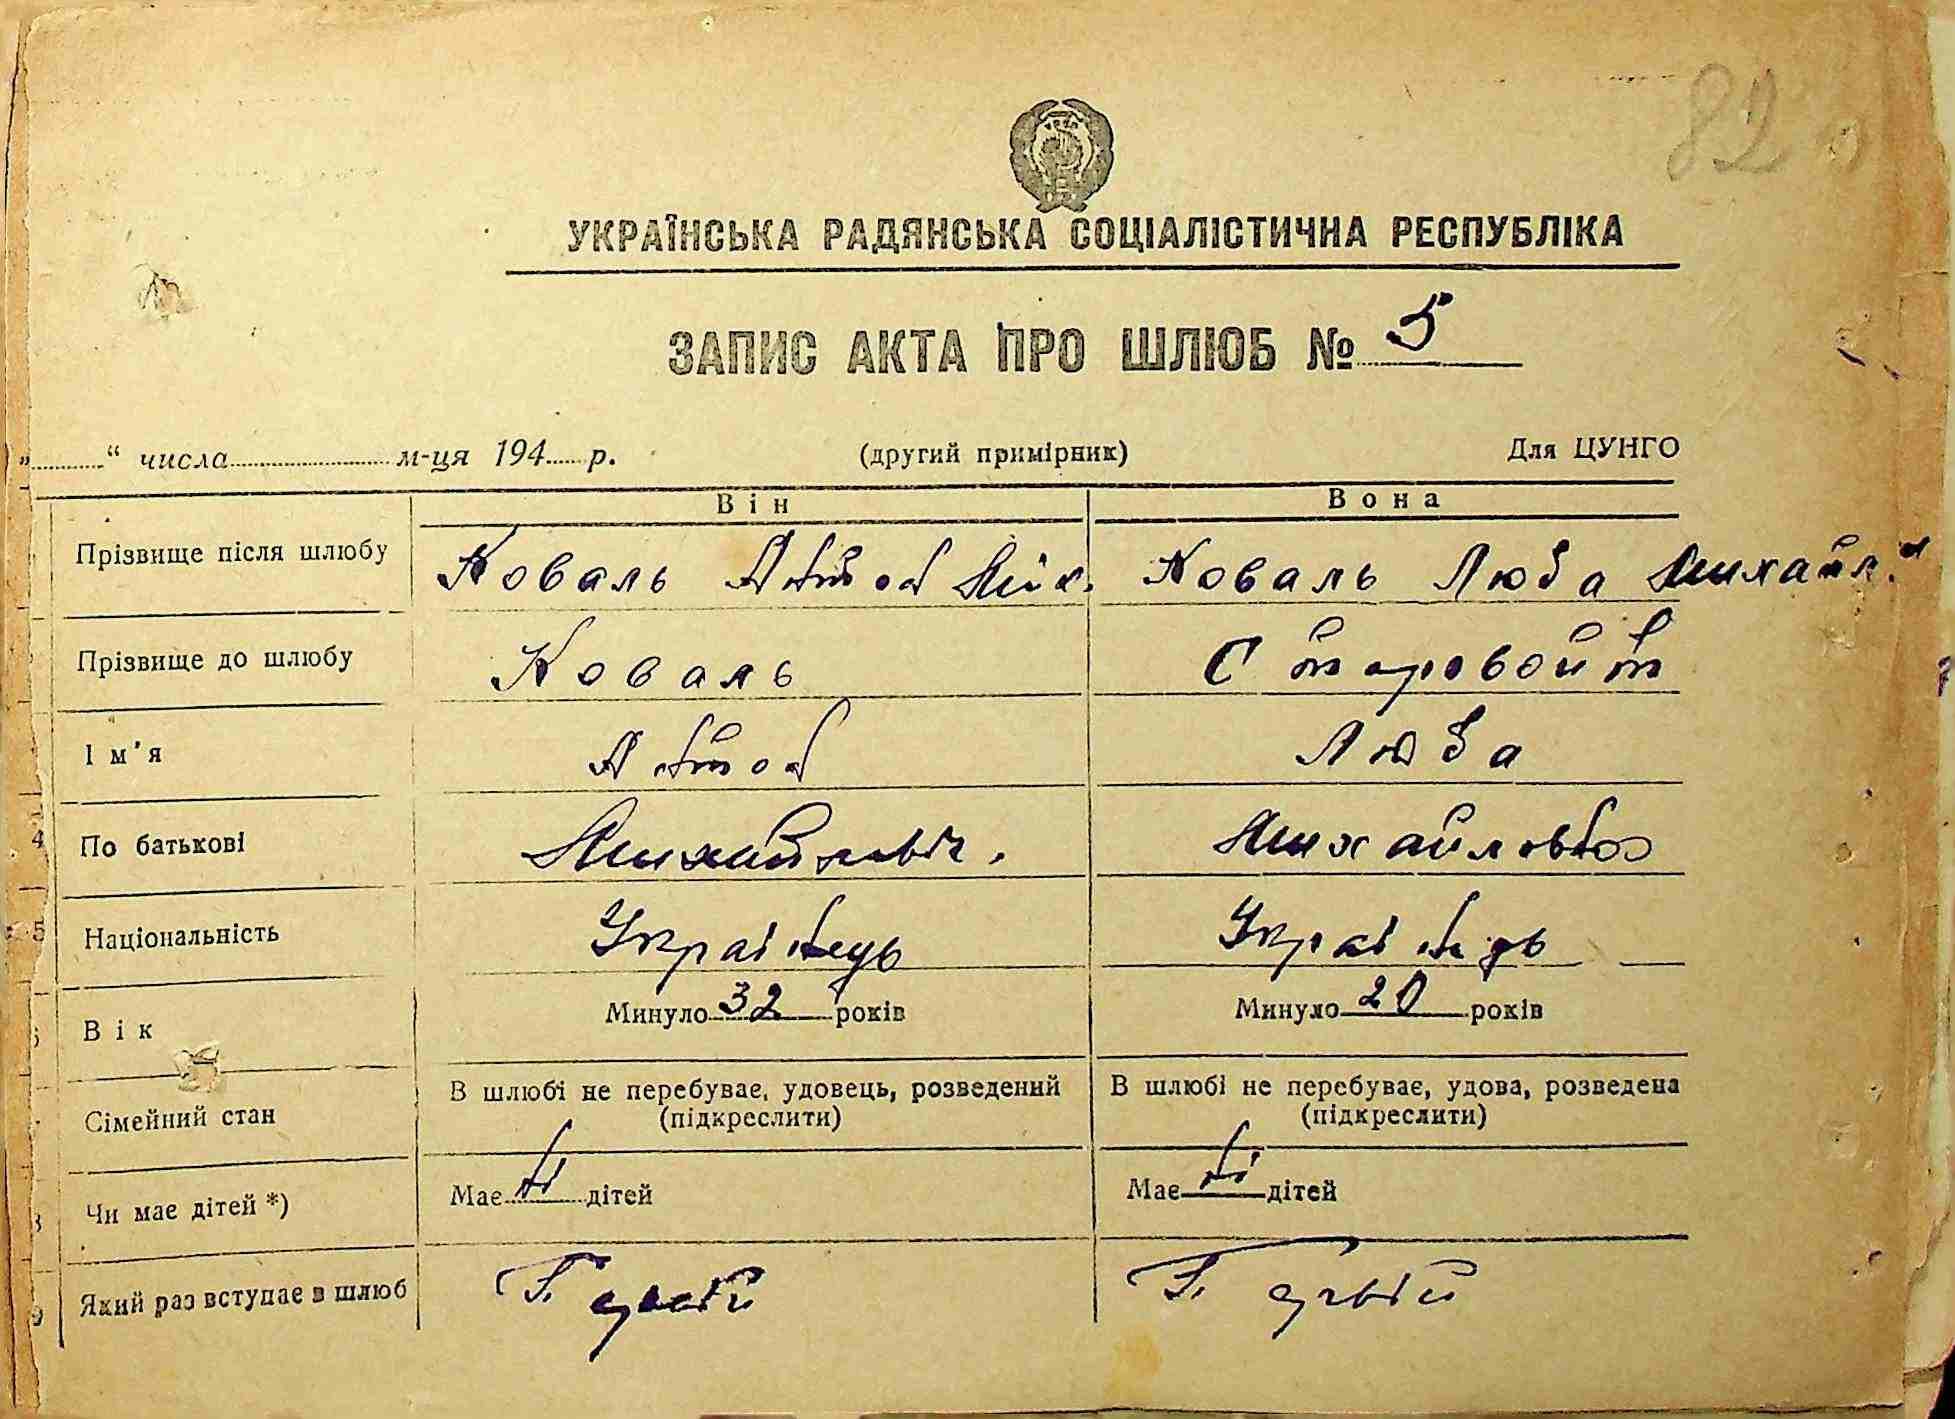 82
УКРАЇНСЬКА РАДЯНСЬКА СОЦІАЛІСТИЧНА РЕСПУБЛІКА
ЗАПИС АКТА ПРО ШЛЮБ № 5
„ “ числа м-ця 194 р. (другий примірник) Для ЦУНГО
Він Вона
Прізвище після шлюбу Коваль Антон Мих. Коваль Люба Михайл.
Прізвище до шлюбу Коваль Старовойт
Ім'я Антон Люба
4 По батькові Михайлович. Михайловна
5 Національність Українець Українець
Вік Минуло 32 років Минуло 20 років
Сімейний стан В шлюбі не перебуває, удовець, розведений В шлюбі не перебуває, удова, розведена
(підкреслити) (підкреслити)
Чи має дітей *) Має ні дітей Має ні дітей
9 Який раз вступає в шлюб Первый Первый